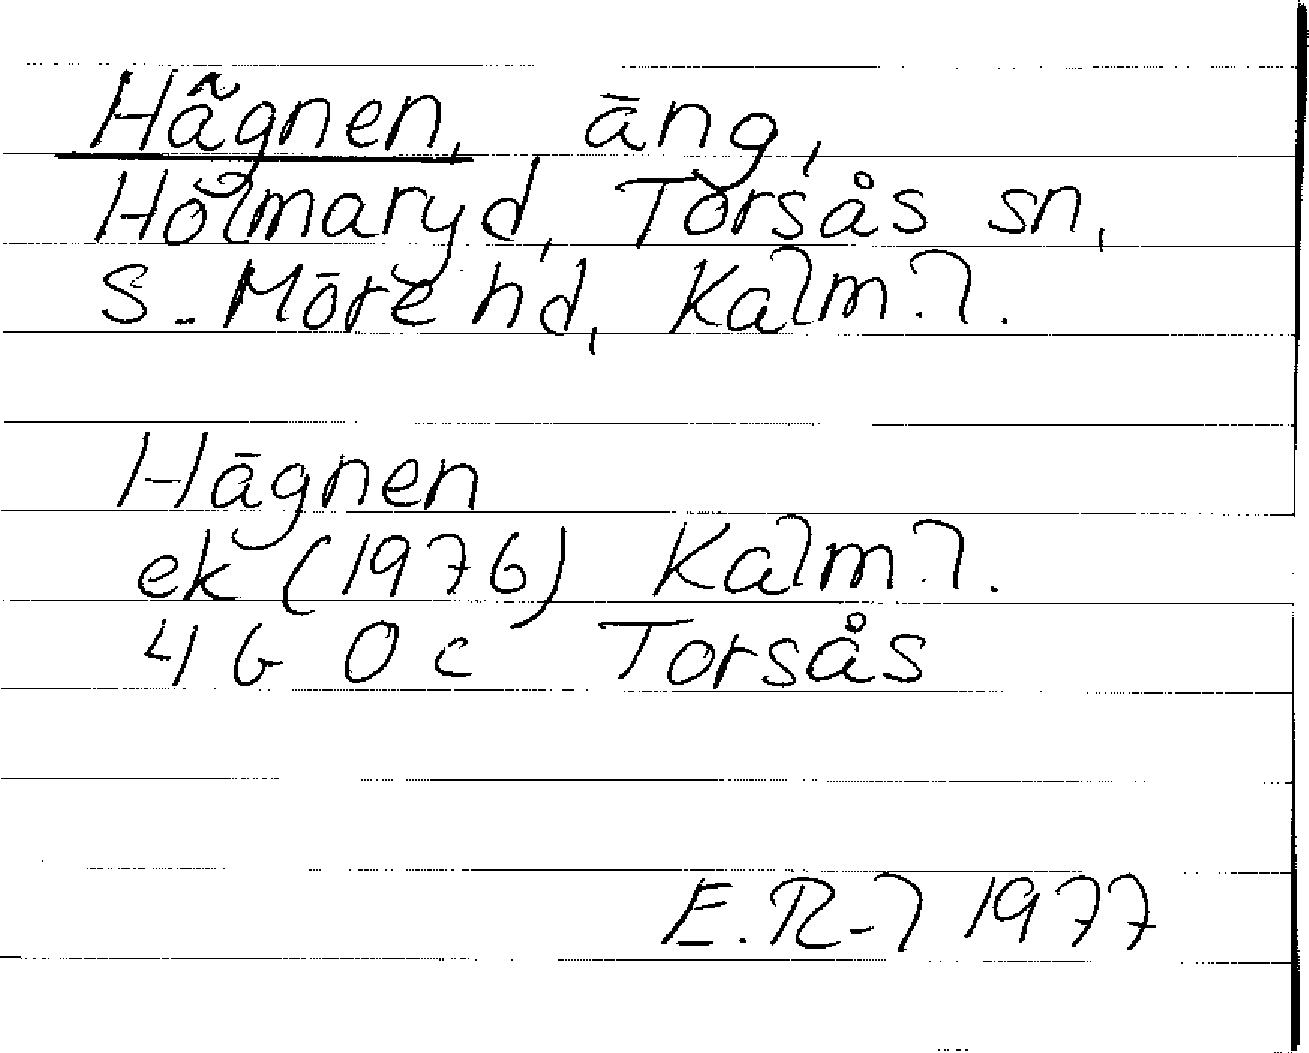 Hägnen, äng,
Holmaryd, Torsås sn,
S. Möre hd, Kalm. l.
Hägnen
ek (1976) Kalm. l.
4 G 0 c Torsås
E. R-l 1977